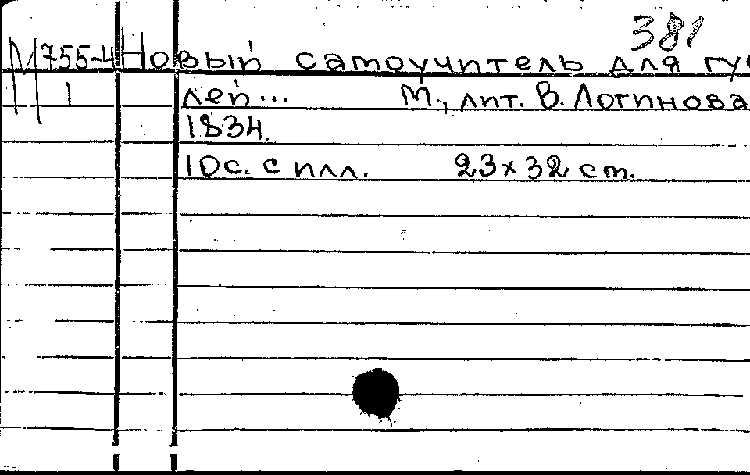 381
М 755-4 Новый самоучитель для гус
1 лей... М., лит. В. Логинова
1834.
10с. с илл. 23×32 cm.